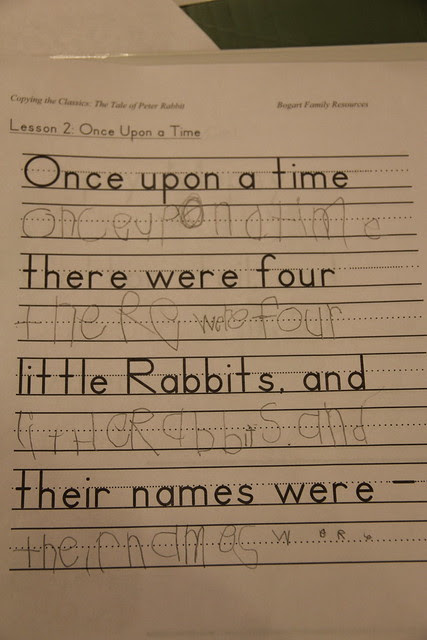 Copying the Classics: The Tale of Peter Rabbit Bogart Family Resources
Lesson 2: Once Upon a Time
Once upon a time
onceupon a time
there were four
theRe were four
little Rabbits, and
littleRabbits. and
their names were –
theirnames weRe